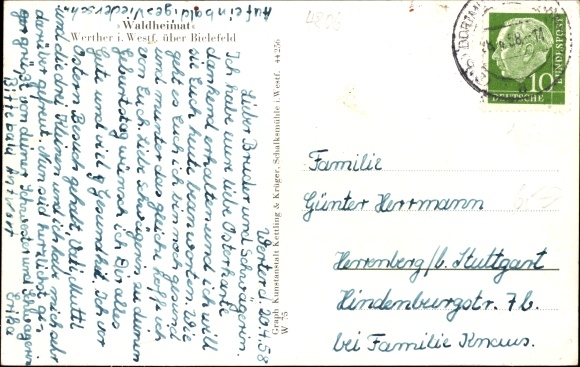 Auf ein baldiges Wiedersehn
»Waldheimat«
Werther i. Westf. über Bielefeld
44 256
Werter d. 20.4.58
Lieber Bruder und Schwägerin.
Ich habe eure liebe Osterkarte
dankend erhalten und ich will
sie Euch heute beantworten. Wie
geht es Euch ich bin noch gesund
und munter das gleiche hoffe ich
von Euch. Liebe Schwägerin zu deinen
Geburtstag wünsch ich Dir alles
Gute und viel Gesundheit. Ich vor
Ostern Besuch gehabt Vati Mutti
und die drei Kleinen und ich habe mich sehr
darüber gefreut. Nun seid herzlichst ge
gegrüßt von deiner Schwester und Schwägerin
Erika
Bitte bald Antwort
Graph. Kunstanstalt Kettling & Krüger, Schalksmühle i. Westf.
W 75
DORTMUND
10
DEUTSCHE
BUNDESPOST
Familie
Günter Herrmann
Herrenberg/b. Stuttgart
Hindenburgstr. 7b.
bei Familie Knaus.